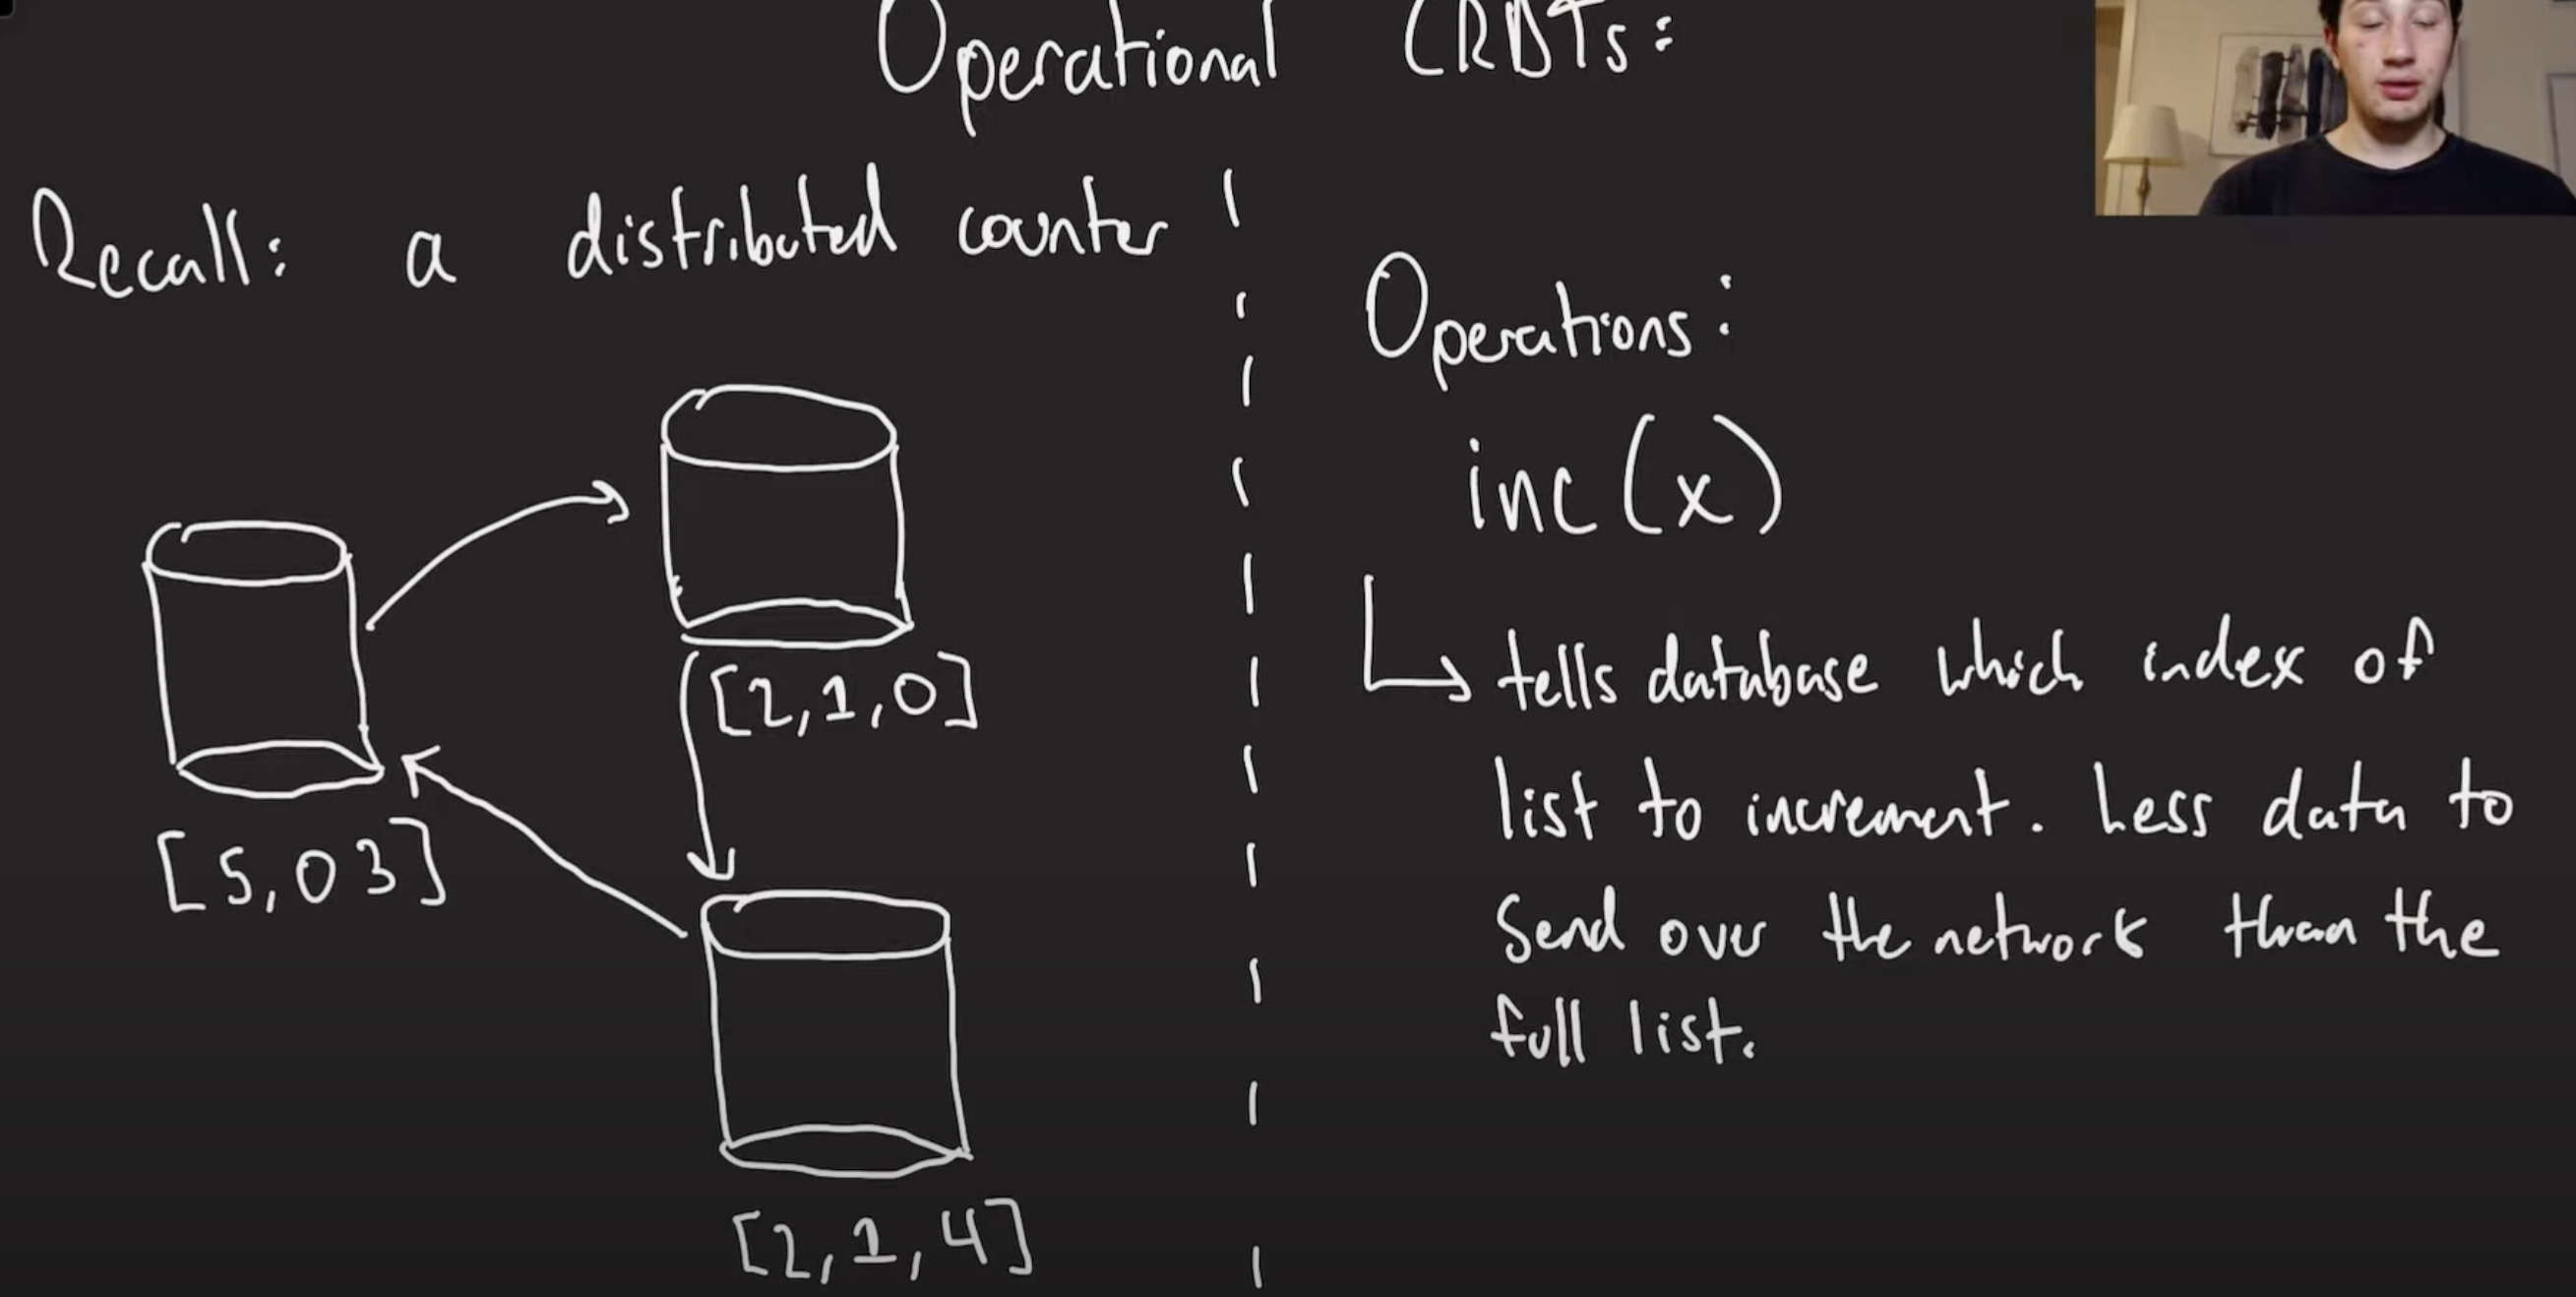 Operational CRDTs:
Recall: a distributed counter
[2,1,0]
[5,0 3]
[2,1,4]
Operations:
inc(x)
tells database which index of
list to increment. Less data to
send over the network than the
full list.